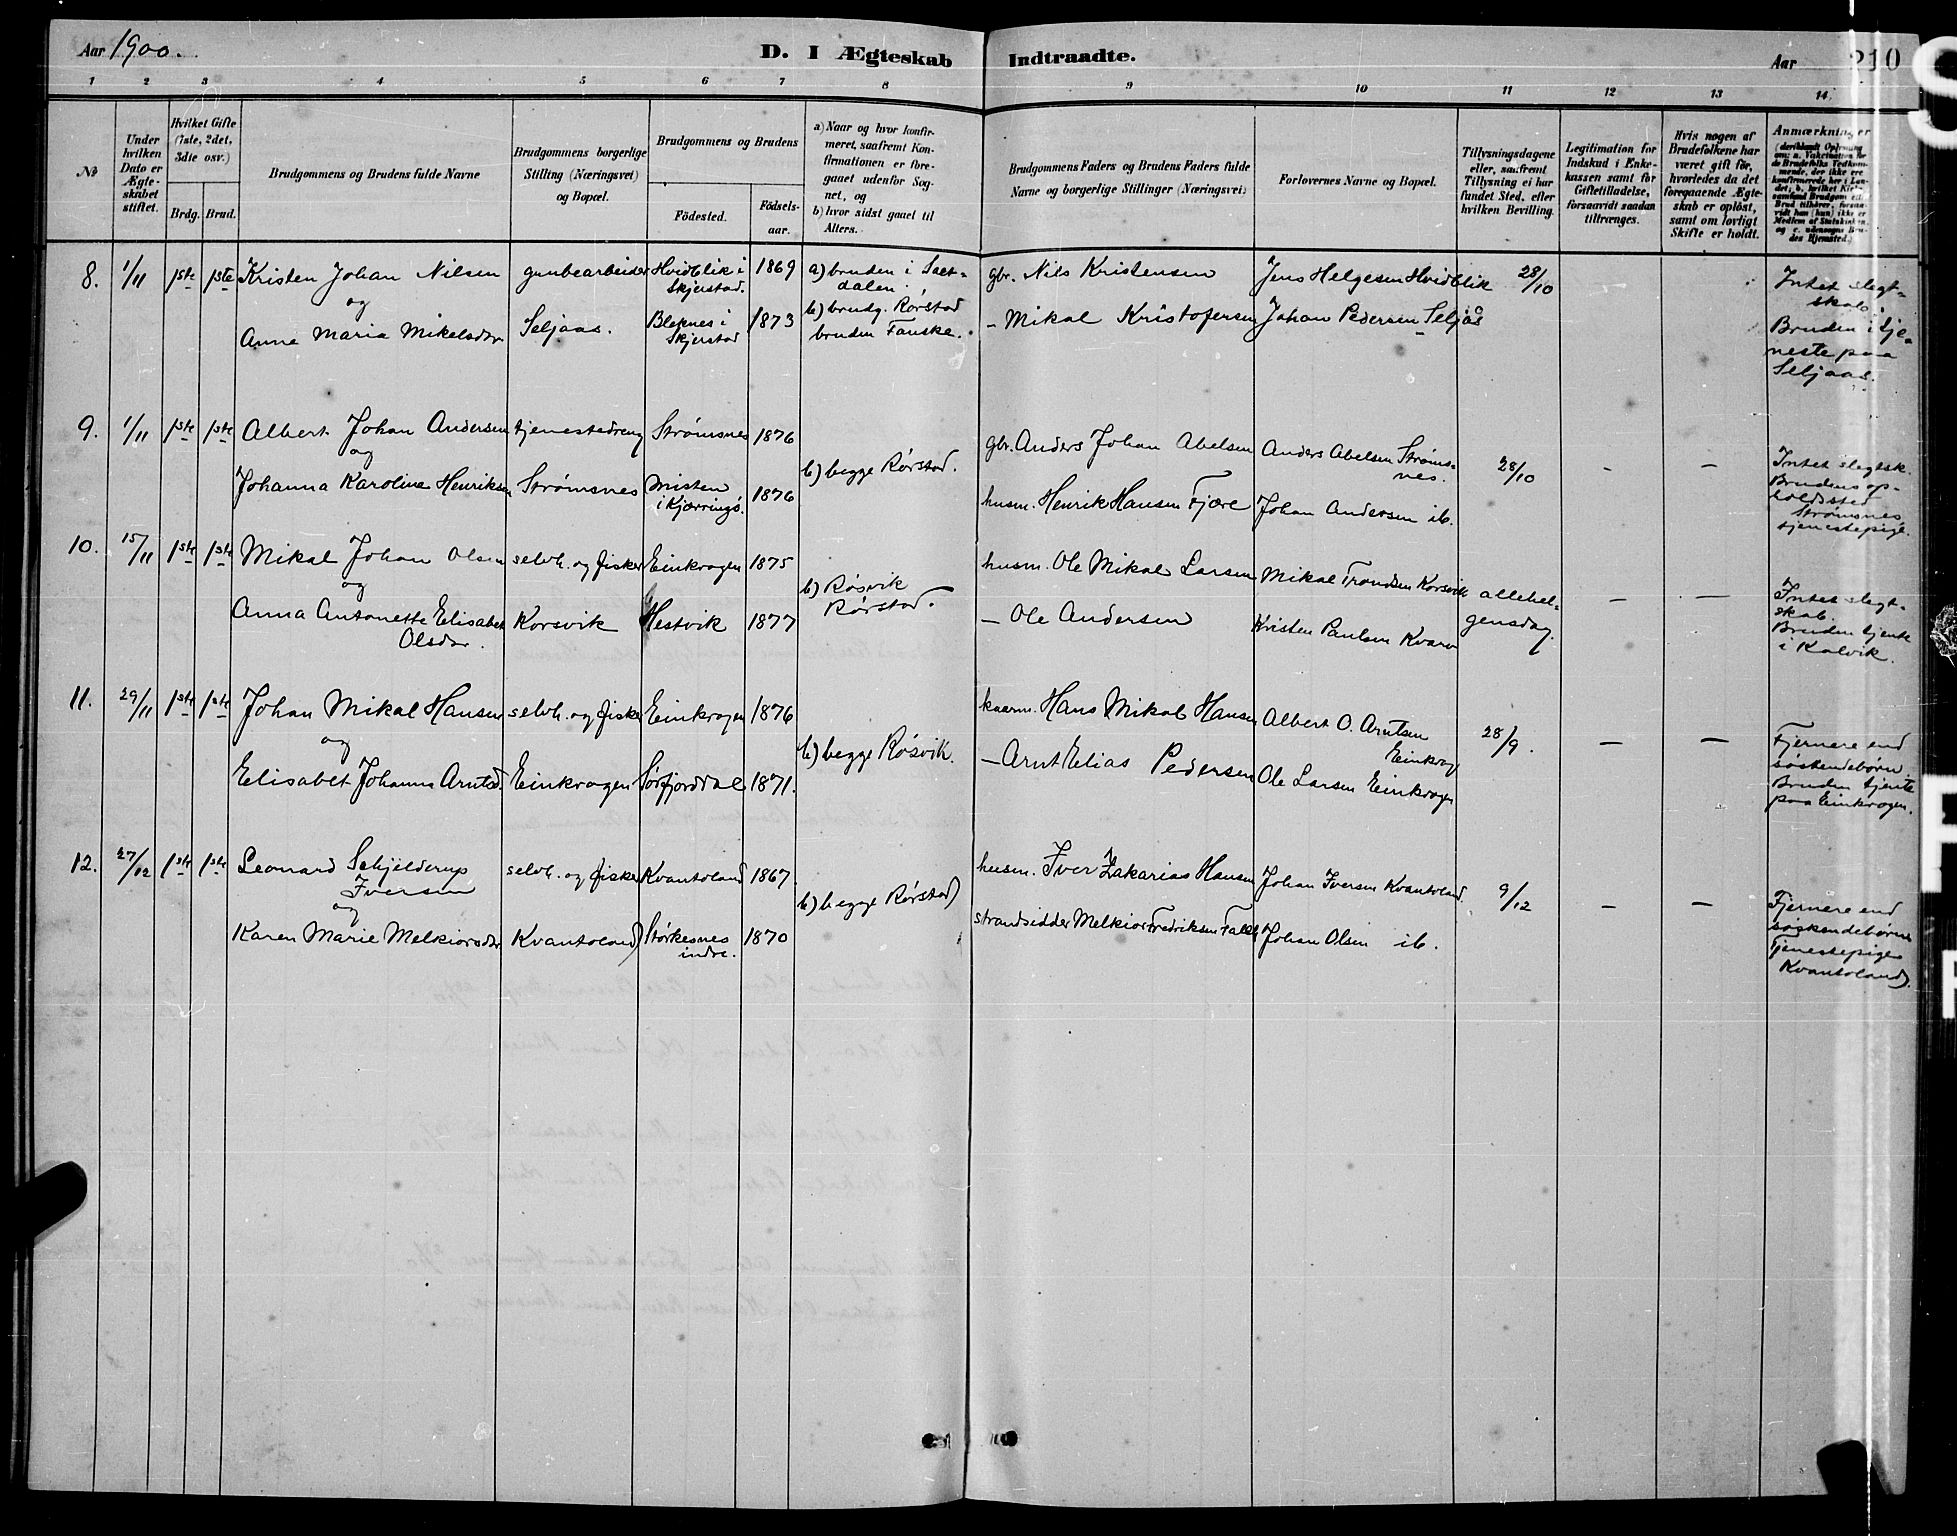 Aar 1900.
D. I Ægteskab Indtraadte.
Aar
210
1 2 3 4 5 6 7 8 9 10 11 12 13 14
No
Under hvilken Dato er Ægteskabet stiftet.
Hvilket Gifte (1ste, 2det, 3die osv.)
Brdg. Brud.
Brudgommens og Brudens fulde Navne
Brudgommens borgerlige Stilling (Næringsvei) og Bopæl.
Brudgommens og Brudens
Födested.
Födsels-aar.
a) Naar og hvor konfir-
meret, saafremt Kon-
firmationen er fore-
gaaet udenfor Sog-
net, og
b) hvor sidst gaaet til
Alters.
Brudgommens Faders og Brudens Faders fulde
Navne og borgerlige Stillinger (Næringsvei)
Forlovernes Navne og Bopæl.
Tillysningsdagene
eller, saafremt
Tillysning ei har
fundet Sted, efter
hvilken Bevilling.
Legitimation for
Indskud i Enke-
kassen samt for
Giftetilladelse,
forsaavidt saadan
tiltrænges.
Hvis nogen af
Brudefolkene har
været gift för,
hvorledes da det
foregaaende Ægte-
skab er oplöst,
samt om lovligt
Skifte er holdt.
Anmærkninger
8. 1/11 1ste 1ste Kristen Johan Nilsen
og
Anne Maria Mikelsdr
Seljaas.
Hvidblik i
Skjerstad. 1869
i
Skjerstad 1873
a) bruden i Salt-
dalen.
b) brudg. Rørstad
bruden Fauske.
gbr. Nils Kristensen
- Mikal Kristofersen
Jens Helgesen Hvidblik
Johan Pedersen Seljås
28/10
Intet slegt-
skab.
Bruden i tje-
neste paa
Seljaas.
9. 1/11 1ste 1ste Albert Johan Andersen
og
Johanna Karoline Henriksen
tjenestedreng
Strømsnes
Strømsnes 1876
Misten
i Kjærringö. 1876
b) begge Rørstad.
gbr. Anders Johan Abelsen
husm. Henrik Hansen Fjære
Anders Abelsen Strøms-
nes.
Johan Andersen ib.
28/10 - -
Intet slegtsk.
Brudens op-
holdssted
Strømsnes
tjenestepige.
10. 15/11 1ste 1ste Mikal Johan Olsen
og
Anna Antonette Elisabet
Olsdr.
selvh. og fisker
Korsvik
Einkrogen 1875
Hestvik 1877
b) Røsvik
Rørstad.
husm. Ole Mikal Larsen
- Ole Andersen
Mikal Trondsen Korsvik
Kristen Paulsen Kvarv
allehel-
gensdag. - -
Intet slegt-
skab.
Bruden tjente
i Kalvik.
11. 29/11 1ste 1ste Johan Mikal Hansen
og
Elisabet Johanna Arntsd.
selvh. og fisker
Einkrogen
Einkrogen 1876
Sørfjorddal 1871.
b) begge Røsvik.
kaarm. Hans Mikal Hansen
- Arnt Elias Pedersen
Albert O. Arntsen
Einkrog
Ole Larsen Einkrogen
28/9. - -
Fjernere end
søskendebørn
Bruden tjente
paa Einkrogen.
12. 27/12 1ste 1ste Leonard Schjelderup
Iversen
og
Karen Marie Melkiorsdr
selvh. og fisker
Kvantoland
Kvantoland 1867
Størkesnes
indre. 1870
b) begge Rørstad
husm. Iver Zakarias Hansen
strandsidder Melkior Fredriksen
Johan Iversen Kvantoland.
Johan Olsen ib.
9/12 - -
Fjernere end
søskendebørn
Tjenestepige
Kvantoland.